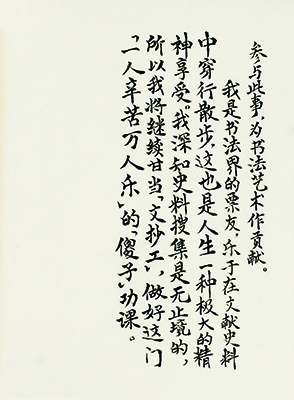 参与此事，为书法艺术作贡献。
我是书法界的票友，乐于在文献史料
中穿行散步，这也是人生一种极大的精
神享受。我深知史料搜集是无止境的，
所以我将继续甘当“文抄工”，做好这门
“一人辛苦万人乐”的“傻子”功课。